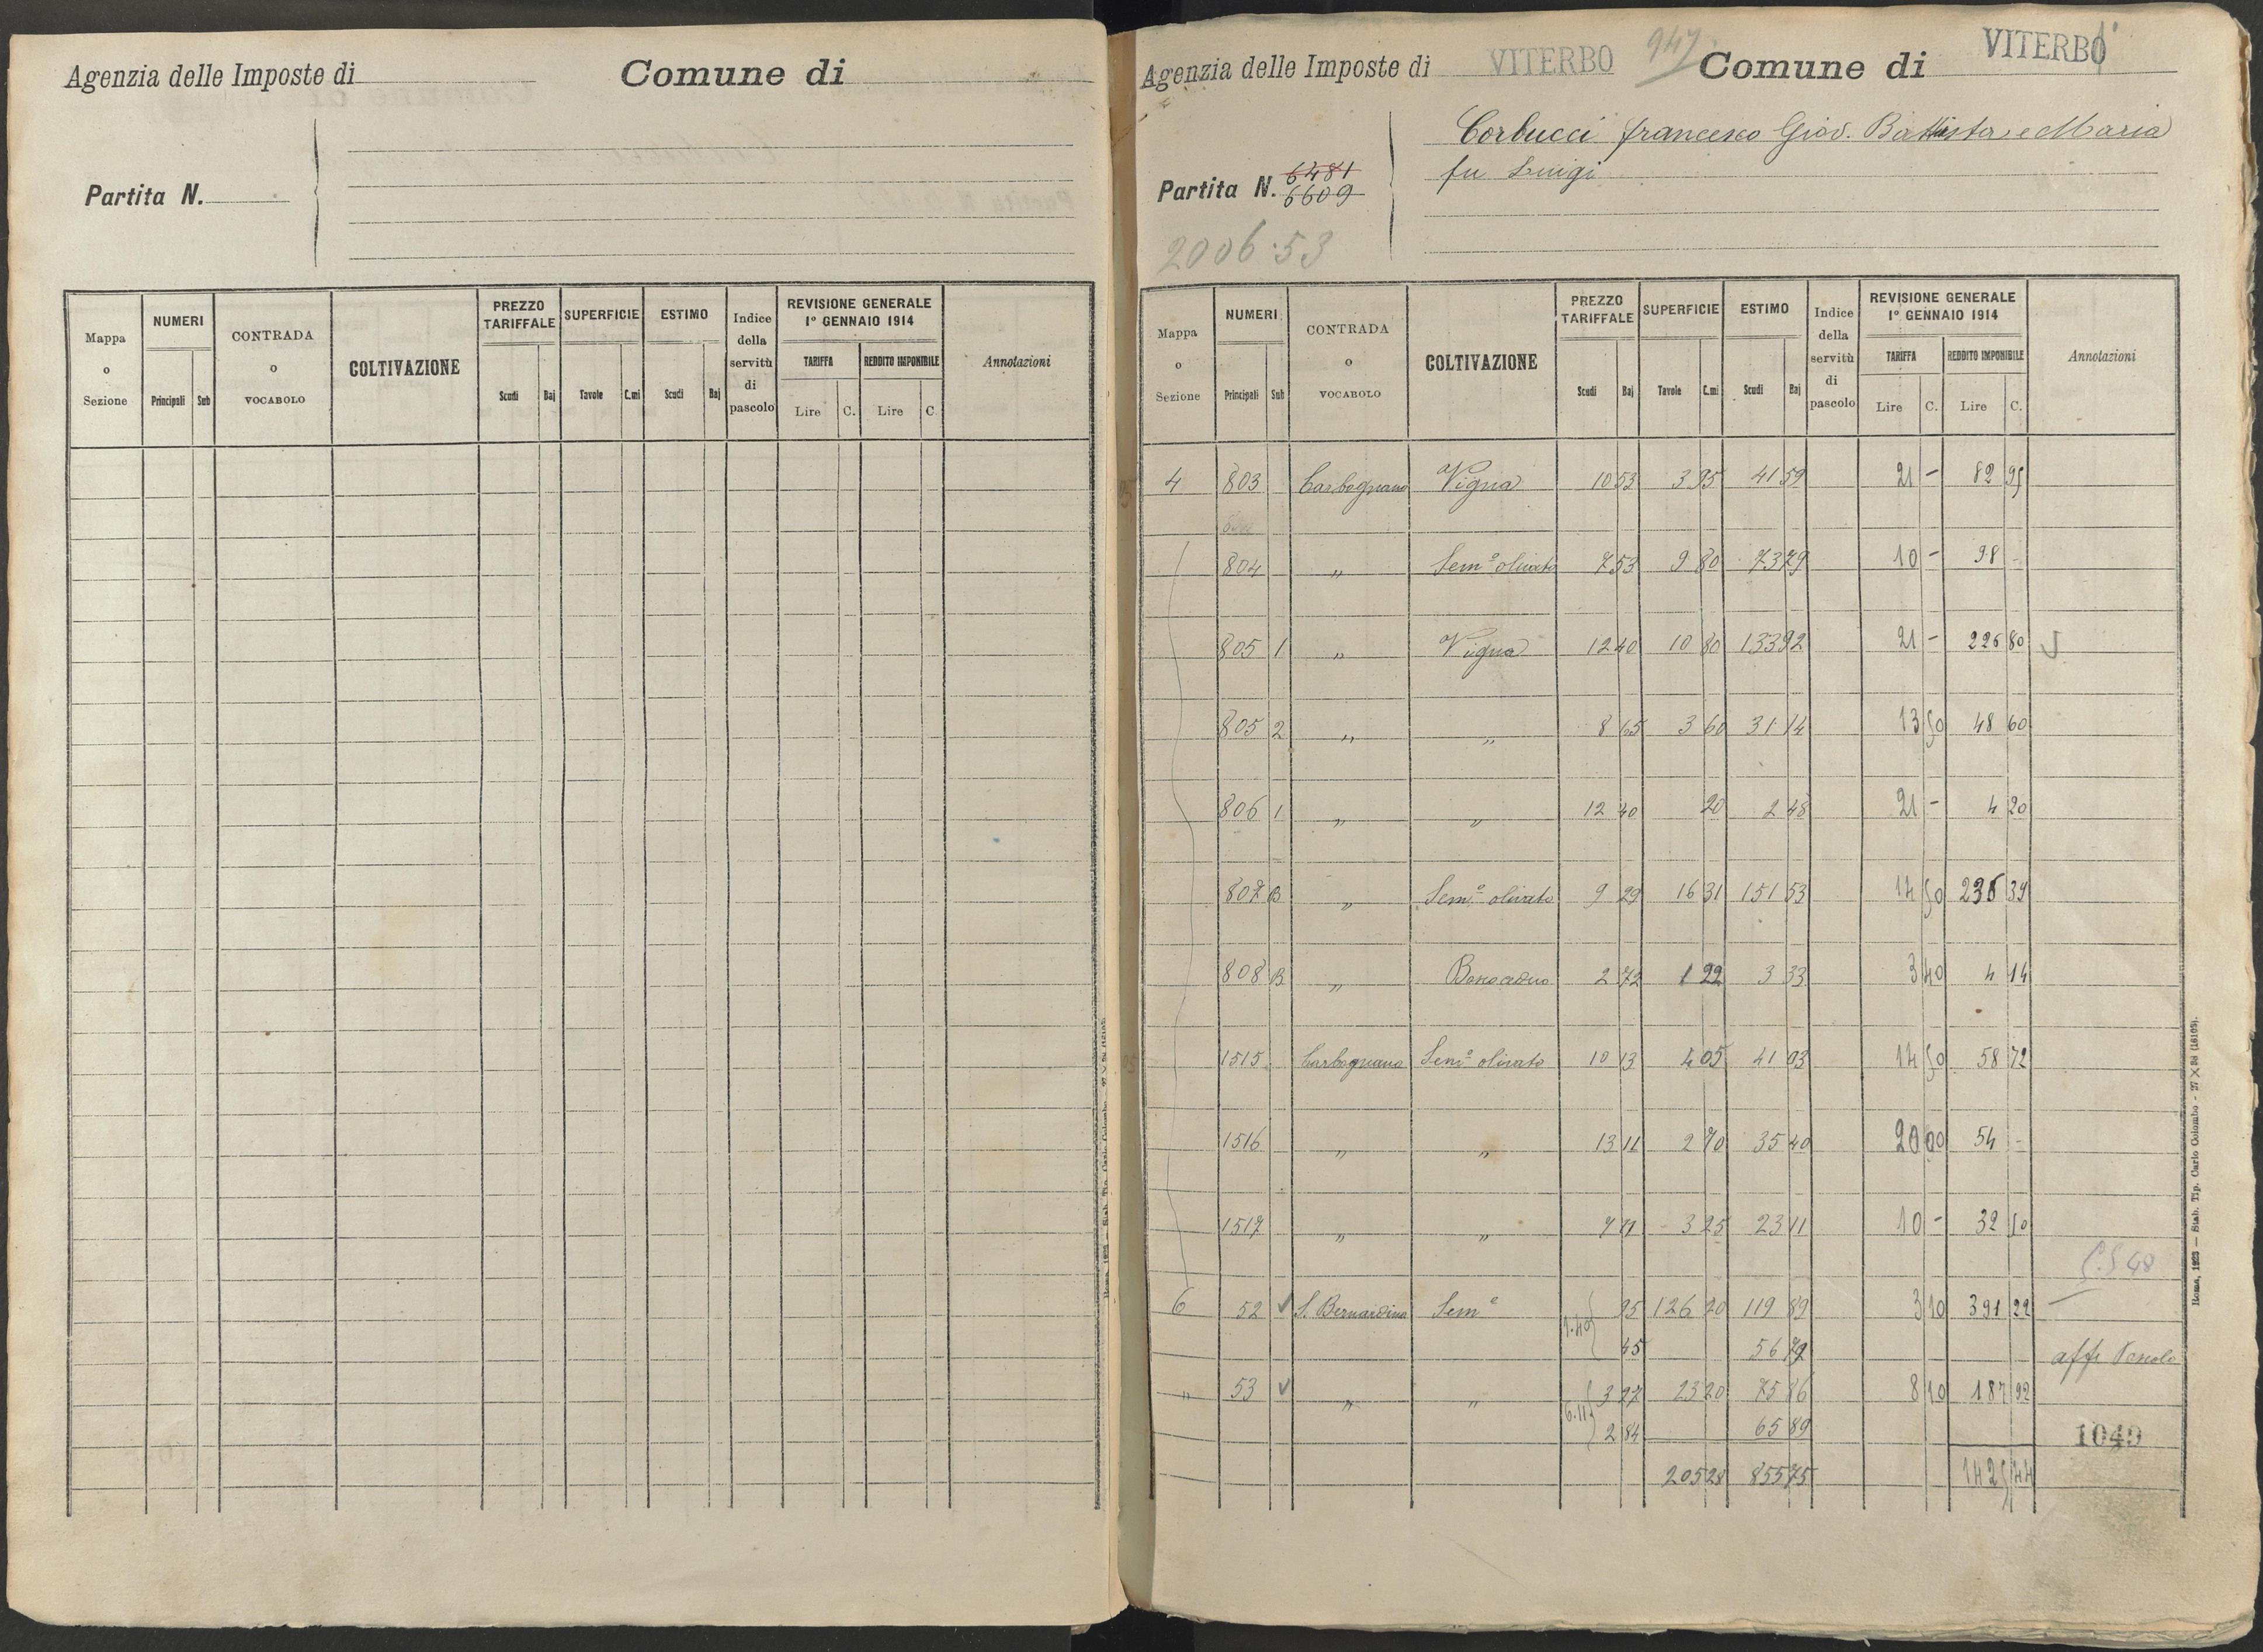 Agenzia delle Imposte di
Comune di
Partita N.
Mappa o Sezione
NUMERI
Principali Sub
CONTRADA o VOCABOLO
COLTIVAZIONE
PREZZO TARIFFALE
Scudi Baj
SUPERFICIE
Tavole C.mi
ESTIMO
Scudi Baj
Indice della servitù di pascolo
REVISIONE GENERALE
1° GENNAIO 1914
TARIFFA REDDITO IMPONIBILE
Lire C. Lire C.
Annotazioni
Agenzia delle Imposte di VITERBO 947 Comune di VITERBO
Corbucci francesco Giov. Battista e Maria
fu Luigi
Partita N. 6481
6609
2006.53
Mappa o Sezione
NUMERI
Principali Sub
CONTRADA o VOCABOLO
COLTIVAZIONE
PREZZO TARIFFALE
Scudi Baj
SUPERFICIE
Tavole C.mi
ESTIMO
Scudi Baj
Indice della servitù di pascolo
REVISIONE GENERALE
1° GENNAIO 1914
TARIFFA REDDITO IMPONIBILE
Lire C. Lire C.
Annotazioni
4 803 Carbognano Vigna 10 53 3 95 41 59 21 - 82 95
804 " Sem° olivato 7 53 9 80 73 79 10 - 98 -
805 1 " Vigna 12 40 10 80 133 92 21 - 226 80
805 2 " " 8 65 3 60 31 14 13 50 48 60
806 1 " " 12 40 20 2 48 21 - 4 20
807 B " Sem° olivato 9 29 16 31 151 53 14 50 236 39
808 B " Bosco ceduo 2 72 1 22 3 33 3 40 4 14
1515 Carbognano Sem° olivato 10 13 4 05 41 03 14 50 58 72
1516 " " 13 11 2 70 35 40 20 00 54 -
1517 " " 7 11 3 25 23 11 10 - 32 50
6 52 S. Bernardino Sem° 1.40 95 126 20 119 89 3 10 391 22
45 56 79
" 53 " " 6.11 3 27 23 20 75 86 8 10 187 92
2 84 65 89
1040
205 28 855 75 1425 44
Roma, 1923 — Stab. Tip. Carlo Colombo - 27 X 38 (16105).